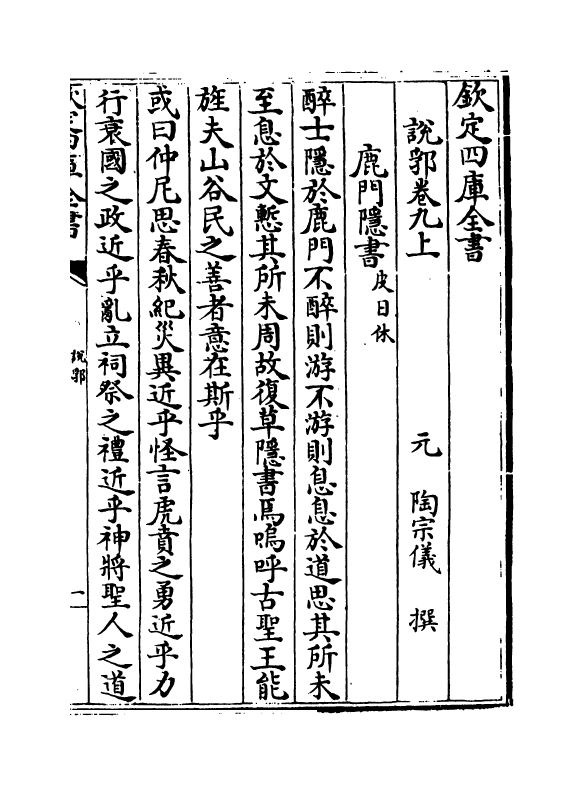 欽定四庫全書
說郛卷九上　元　陶宗儀　撰
鹿門隱書皮日休
醉士隱於鹿門不醉則游不游則息息於道思其所未
至息於文慙其所未周故復草隱書焉嗚呼古聖王能
旌夫山谷民之善者意在斯乎
或曰仲尼思春秋紀災異近乎怪言虎賁之勇近乎力
行衰國之政近乎亂立祠祭之禮近乎神將聖人之道
說郛